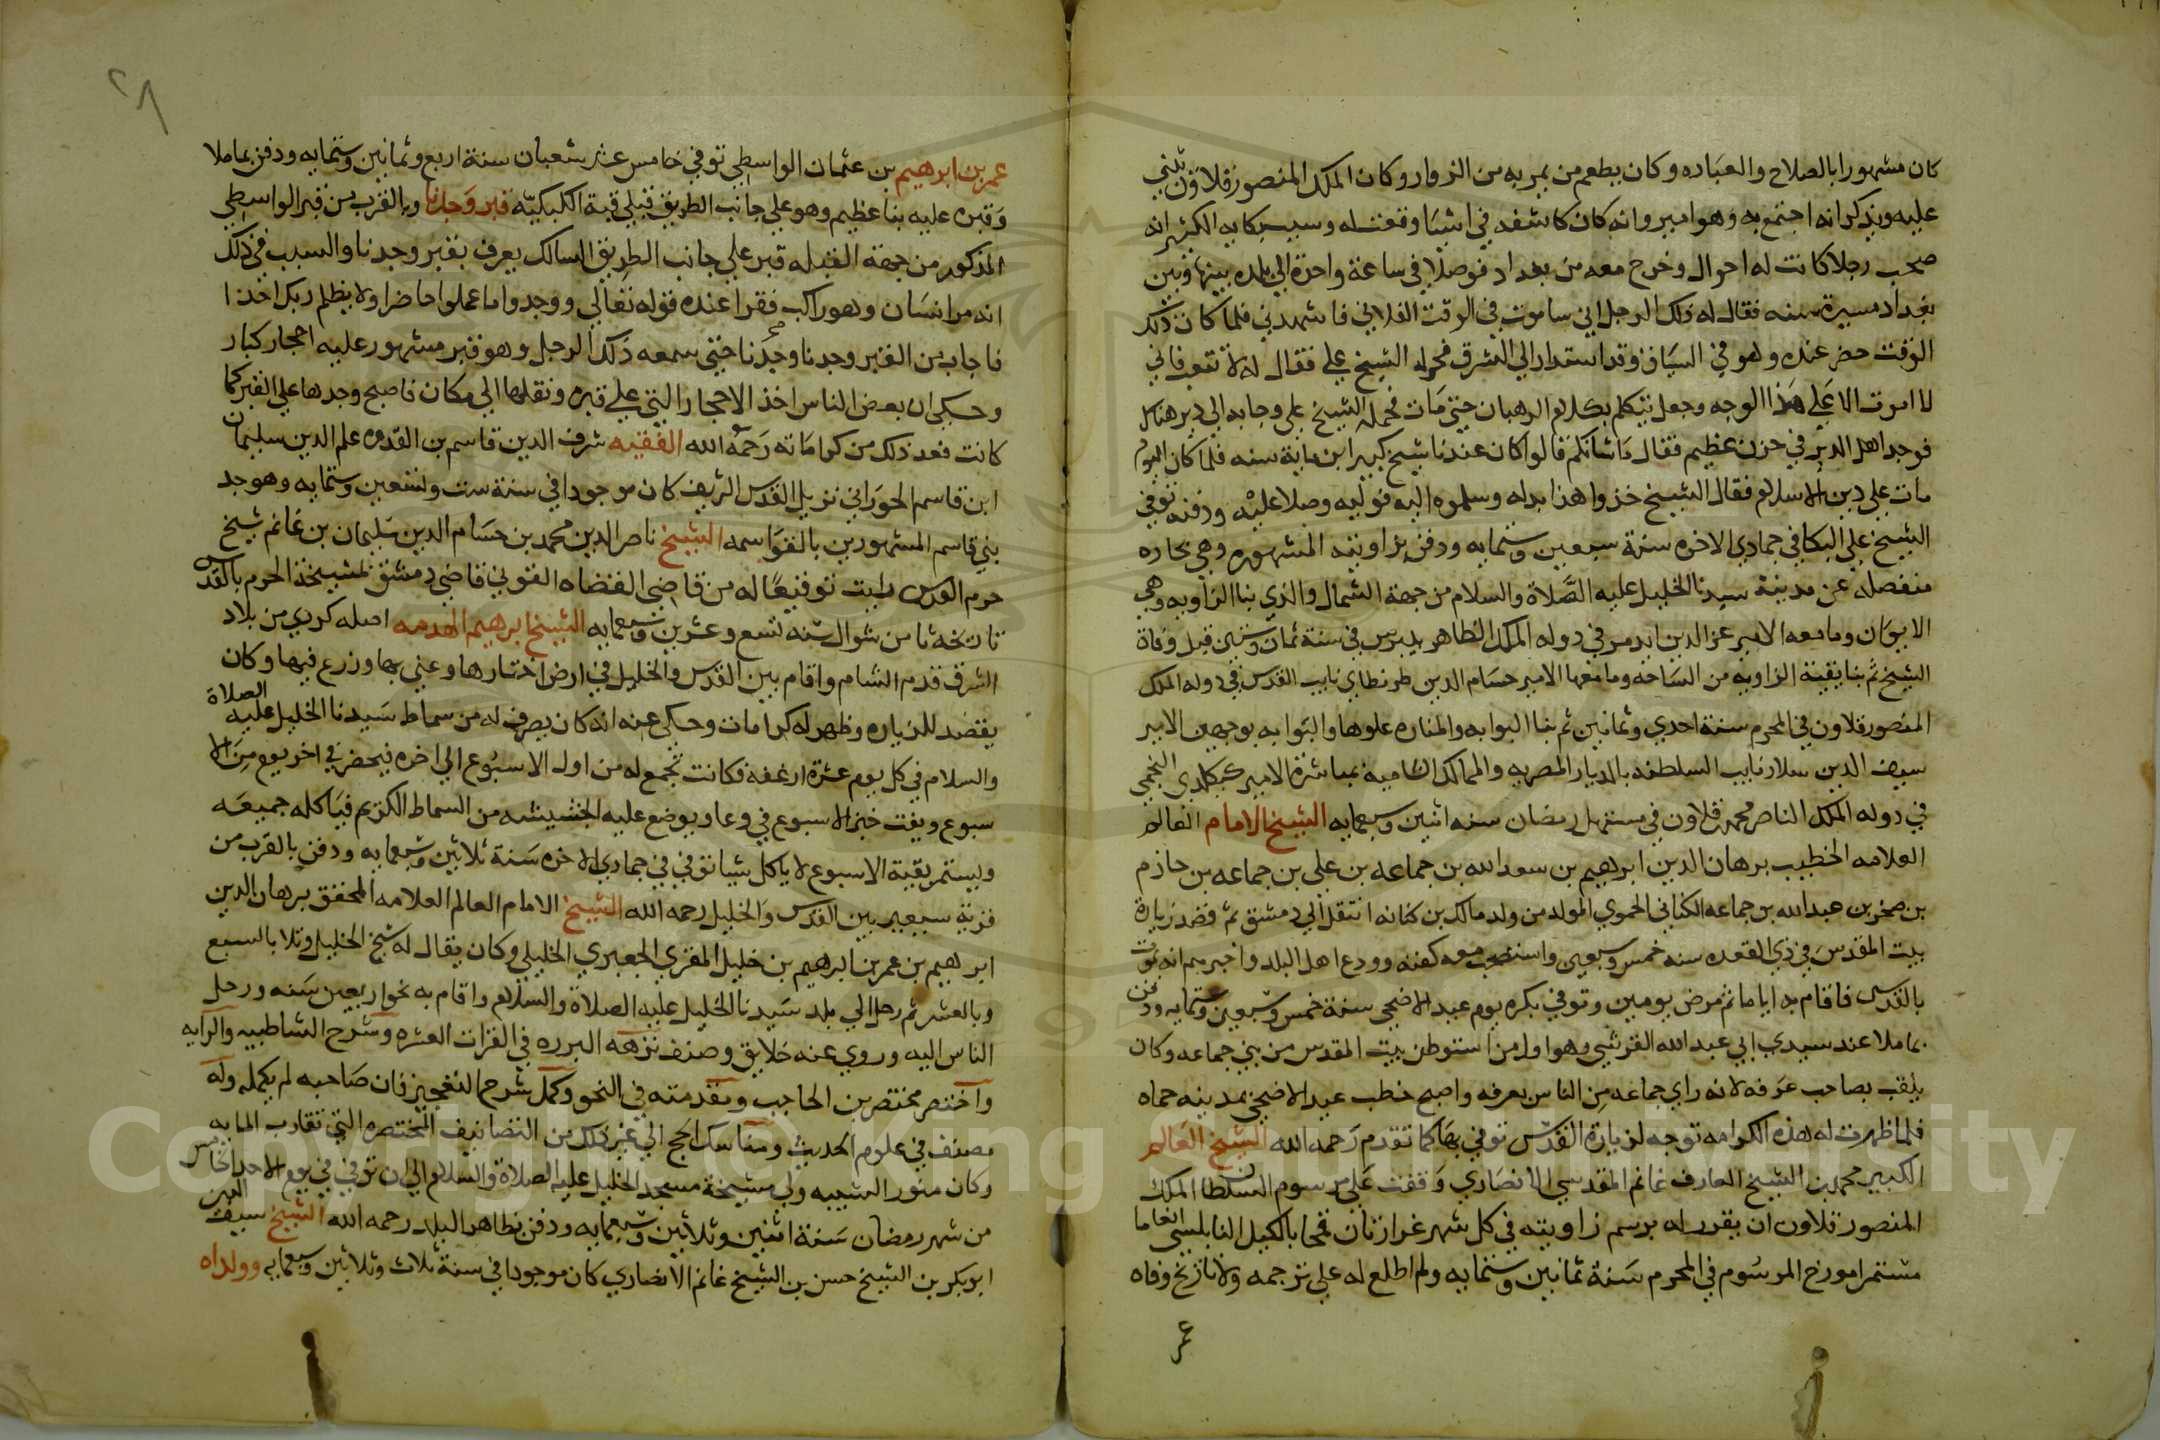 كان مشهورا بالصلاح والعباده وكان يطعم من يمر به من الزوار وكان الملك المنصور قلاوون يثني
عليه ويذكر انه اجتمع به وهو امير وانه كان كاشفه في اشيا وقعت له وسبب بكايه الكثير انه
صحب رجلا كانت له احوال وخرج معه من بغداد فوصلا في ساعة واحدة الي بلده بينها وبين
بغداد مسيرة سنه فقال له ذلك الرجل اني ساموت في الوقت الفلاني فاشهدني فلما كان ذلك
الوقت حضر عنده وهو في السياق وقد استدار الي الشرق فحوله الشيخ علي فقال له لا تتعب فاني
لا اموت الا علي هذا الوجه وجعل يتكلم بكلام الرهبان حتي مات فحمله الشيخ علي وجا به الي دير هناك
فوجد اهل الدير في حزن عظيم فقال ما شانكم قالوا كان عندنا شيخ كبير ابن ماية سنه فلما كان اليوم
مات علي دين الاسلام فقال الشيخ خذوا هذا بدله وسلموه اليه فوليه وصلا عليه ودفنه توفي
الشيخ علي البكا في جمادي الاخره سنة سبعين وستمايه ودفن بزاويته المشهوره وهي بحاره
منفصله عن مدينة سيدنا الخليل عليه الصلاة والسلام من جهة الشمال والذي بنا الزاويه وهي
الايوان وما معه الامير عز الدين ايدمر في دوله الملك الظاهر بيبرس في سنة ثمان وستين قبل وفاة
الشيخ ثم بنا بقية الزاويه من الساحه وما معها الامير حسام الدين طرنطاي نايب القدس في دوله الملك
المنصور قلاون في المحرم سنة احدي وثمانين ثم بنا البوابه والمناره علوها والبوابه بوجهين الامير
سيف الدين سلار نايب السلطنه بالديار المصريه والممالك الشاميه بمباشرة الامير كيكلدي النجمي
في دوله الملك الناصر محمد بن قلاون في مستهل رمضان سنه اثنين وسبعمايه الشيخ الامام العالم
العلامه الخطيب برهان الدين ابرهيم بن سعد الله بن جماعه بن علي بن جماعه بن حازم
بن صخر بن عبد الله بن جماعه الكناني الحموي المولد من ولد مالك بن كنانه انتقل الي دمشق ثم قصد زيارة
بيت المقدس في ذي القعده سنه خمس وسبعين واستصحب معه كفنه وودع اهل البلد واخبرهم انه يموت
بالقدس فاقام به اياما ثم مرض يومين وتوفي بكره يوم عيد الاضحي سنة خمس وسبعين وستمايه ودفن
بماملا عند سيدي ابي عبد الله القرشي وهو اول من استوطن بيت المقدس من بني جماعه وكان
يلقب بصاحب عرفه لانه راي جماعه من الناس بعرفه واصبح خطب عيد الاضحي بمدينه حماه
فلما ظهرت له هذه الكرامه توجه لزيارة القدس توفي بها كما تقدم رحمه الله الشيخ العالم
الكبير محمد بن الشيخ العارف غانم المقدسي الانصاري وقفت علي مرسوم السلطان الملك
المنصور قلاون ان يقرر له برسم زاويته في كل شهر غرارتان قمحا بالكيل النابلسي انعاما
مستمرا مورخ المرسوم في المحرم سنة ثمانين وستمايه ولم اطلع له علي ترجمه ولا تاريخ وفاه
عمر
٢٨
عمر بن ابرهيم بن عثمان الواسطي توفي خامس عشر شعبان سنة اربع وثمانين وستمايه ودفن بماملا
وقبره عليه بنا عظيم وهو علي جانب الطريق قبلي قبة الكبكيه قبر وجدنا وبالقرب من قبر الواسطي
المذكور من جهة القبله قبر علي جانب الطريق السالك يعرف بقبر وجدنا والسبب في ذلك
انه مر انسان وهو راكب فقرا عنده قوله تعالي ووجدوا ما عملوا حاضرا ولا يظلم ربك احدا
فاجاب من القبر وجدنا وجدنا حتي سمعه ذلك الرجل وهو قبر مشهور عليه احجار كبار
وحكي ان بعض الناس اخذ الاحجار التي علي قبره ونقلها الي مكان فاصبح وجدها علي القبر كما
كانت فعد ذلك من كراماته رحمه الله الفقيه شرف الدين قاسم بن القدوه علم الدين سليمان
ابن قاسم الحوراني نزيل القدس الشريف كان موجودا في سنة ست وتسعين وستمايه وهو جد
بني قاسم المشهورين بالقواسمه الشيخ ناصر الدين محمد بن حسام الدين سليمان بن غانم شيخ
حرم القدس رايت توقيعا له من قاضي القضاه القونوي قاضي دمشق لمشيخة الحرم بالقدس
تاريخه ثامن شوال سنه تسع وعشرين وسبعمايه الشيخ ابرهيم الهدمه اصله كردي من بلاد
الشرق قدم الشام واقام بين القدس والخليل في ارض اختارها وعني بها وزرع فيها وكان
يقصد للزياره وظهر له كرامات وحكي عنه انه كان يصرف له من سماط سيدنا الخليل عليه الصلاة
والسلام في كل يوم عشرة ارغفه فكانت تجمع له من اول الاسبوع الي اخره فيحضر في اخر يوم من الا
سبوع ويفت خبز الاسبوع في وعا ويوضع عليه الجشيشه من السماط الكريم فياكله جميعه
ويستمر بقية الاسبوع لا ياكل شيا توفي في جمادي الاخره سنة ثلاثين وسبعمايه ودفن بالقرب من
قرية سعير بين القدس والخليل رحمه الله الشيخ الامام العالم العلامه المحقق برهان الدين
ابرهيم بن عمر بن ابرهيم بن خليل المقري الجعبري الخليلي وكان يقال له شيخ الخليل وتلا بالسبع
وبالعشر ثم رحل الي بلد سيدنا الخليل عليه الصلاة والسلام واقام به نحو اربعين سنه ورحل
الناس اليه وروي عنه خلايق وصنف نزهة البرره في القرات العشره وشرح الشاطبيه والرايه
واختصر مختصر بن الحاجب ومقدمته في النحو وكمل شرح التعجيز فان صاحبه لم يكمله وله
مصنف في علوم الحديث ومناسك الحج الي غير ذلك من التصانيف المختصره التي تقارب المايه
وكان منور الشيبه ولي مشيخة مسجد الخليل عليه الصلاة والسلام الي ان توفي في يوم الاحد الخامس
من شهر رمضان سنة اثنين وثلاثين وسبعمايه ودفن بظاهر البلد رحمه الله الشيخ سيف الدين
ابو بكر بن الشيخ حسن بن الشيخ غانم الانصاري كان موجودا في سنة ثلاث وثلاثين وسبعمايه وولداه